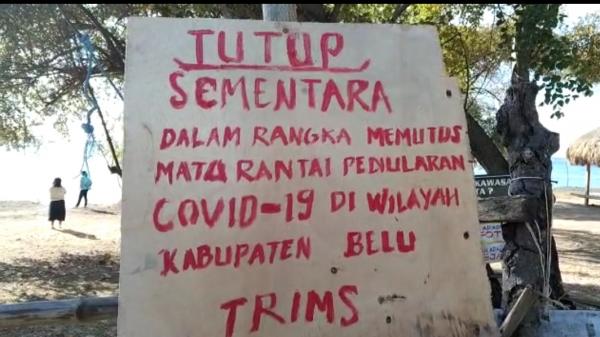 TUTUP
SEMENTARA
DALAM RANGKA MEMUTUS
MATA RANTAI PENULARAN
COVID-19 DI WILAYAH
KABUPATEN BELU
TRIMS
KAWASA